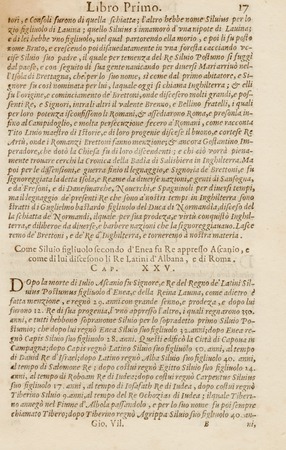 Libro Primo. 17
ri, e Consoli furono di quella schiatta; l'altro hebbe nome Siluius per lo
zio figliuolo di Lauina; quello Siluius s'innamorò d'vna nipote di Lauina;
e di lei hebbe vno figliuolo, nel qual partorendo ella morìo, e poi li fu posto
nome Bruto, e crescendo poi disauedutamente in vna foresta cacciando vc-
cise Siluio suo padre, il quale per temenza del Re Siluio Postumo si fuggì
dal paese, e con seguito di sua gente nauicando per diuersi Mari arriuò nel-
l'Isola di Brettagna, che per lo suo nome, sì come dal primo abitatore, e Si-
gnore fu così nominata per lui, laquale oggi si chiama Inghilterra; & elli
fu il cominciatore, e lignaggio de' Brettoni, onde discesero molti grandi, e pos-
senti Re, e Signori, intra li altri il valente Brenno, e Bellino fratelli, i quali
per loro potenza isconfissono li Romani, & assediarono Roma, e presonla in-
fino al Campidoglio, e molta persecuzione fecero a' Romani, come racconta
Tito Liuio maestro di Istorie, e di loro progenie discese il buono, e cortese Re
Artù, onde i Romanzi Brettoni fanno menzione; & ancora Gostantino Im-
peradore, che dotò la Chiesa fu di loro discendenti; e chi ciò vorrà piena-
mente trouare cerchi la Cronica della Badia di Salisbiera in Inghilterra. Ma
poi per le dissensioni, e guerra finìo il legnaggio, e Signoria de' Brettoni, e fu
signoreggiata la detta Isola, e Reame da diuerse nazioni, e genti di Sansogna, e
da' Fresoni, e di Danesmarche, Nouerchi, e Spagnuoli per diuersi tempi,
ma il legnaggio de' presenti Re che sono a' nostri tempi in Inghilterra, sono
stratti di Guglielmo Bastardo figliuolo del Duca di Normandia, disceso del
la schiatta de' Normandi, ilquale per sua prodezza, e virtù conquistò Inghil-
terra, e diliberoe da diuerse, e barbere nazioni che la signoreggiauano. Lasse-
remo de' Brettoni, e de' Re d'Inghilterra, e torneremo a nostra materia.
Come Siluio figliuolo secondo d'Enea fu Re appresso Ascanio, e
come di lui discesono li Re Latini d'Albana, e di Roma.
CAP. XXV.
DOpo la morte di Iulio Ascanio fu Signore, e Re del Regno de' Latini Sil-
uius Postumus figliuolo d'Enea, e della Reina Lauina, come adietro è
fatta menzione, e regnò 29. anni con grande senno, e prodezza, e dopo lui
furono 12. Re di sua progenia, l'vno appresso l'altro, i quali regnarono 350.
anni, e tutti hebbono sopranome Siluio per lo sopradetto primo Siluio Po-
stumio; che dopo lui regnò Enea Siluio suo figliuolo 32. anni; dopo Enea re-
gnò Capis Siluio suo figliuolo 28. anni. Questi edificò la Città di Capoua in
Campagna; dopo Capis regnò Latino Siluio suo figliuolo 50. anni, al tempo
di Dauid Re d'Israel; dopo Latino regnò Alba Siluio suo figliuolo 40. anni,
al tempo di Salomone Re; dopo costui regnò Egitto Siluio suo figliuolo 24.
anni, al tempo di Roboam Re di Iudea; dopo costui regnò Carpentus Siluius
suo figliuolo 17. anni, al tempo di Iosafath Re di Iudea, dopo costui regnò
Tiberino Siluio 9. anni, al tempo del Re Ochozias di Iudea; ilquale Tiberi-
no annegò nel Fiume d'Albola passandolo, e per lo suo nome fu poi sempre
chiamato Tibero; dopo Tiberino regnò Agrippa Siluio suo figliuolo 40. an-
Gio. Vil. B ni,